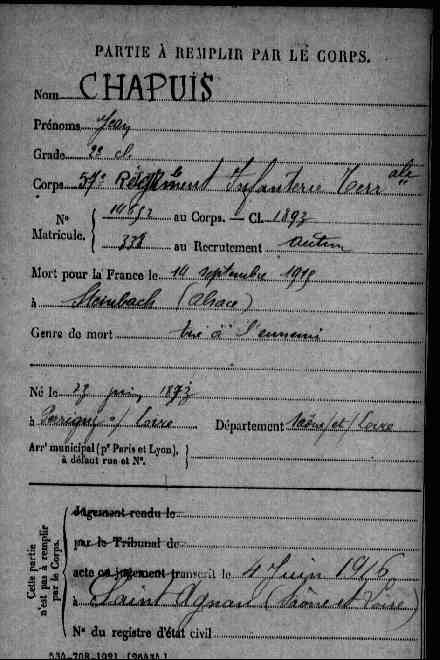 PARTIE À REMPLIR PAR LE CORPS.
Nom CHAPUIS
Prénoms Jean
Grade 2e cl.
Corps 57e Régiment Infanterie Terr ale
N° Matricule. au Corps. — Cl. 1893
338 au Recrutement Autun
Mort pour la France le 14 septembre 1915
à Steinbach (Alsace)
Genre de mort tué à l'ennemi
Né le 23 juin 1873
à Perrigny s/ Loire Département Saône/et/Loire
Arrt municipal (pr Paris et Lyon), à défaut rue et N°.
Cette partie n'est pas à remplir par le Corps.
Jugement rendu le
par le Tribunal de
acte ou jugement transcrit le 4 Juin 1916
à Saint Agnan (Saône et Loire)
N° du registre d'état civil
534-708-1921. [26434.]